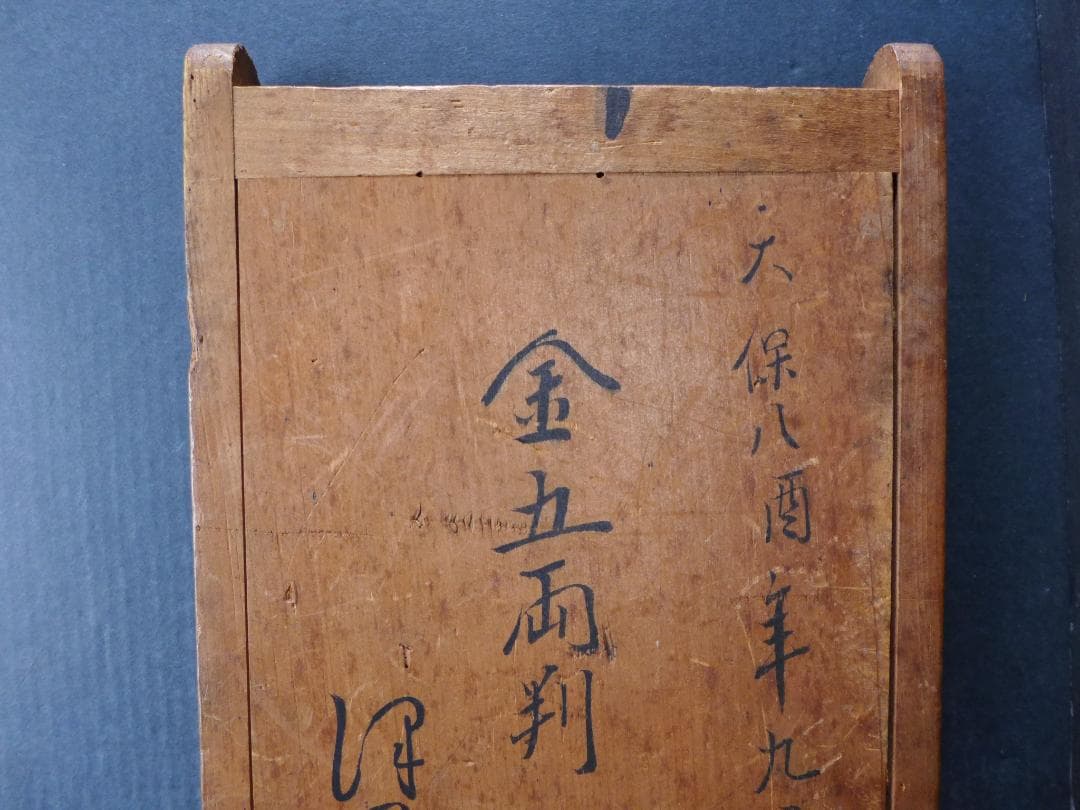 天保八酉年九
金五両判